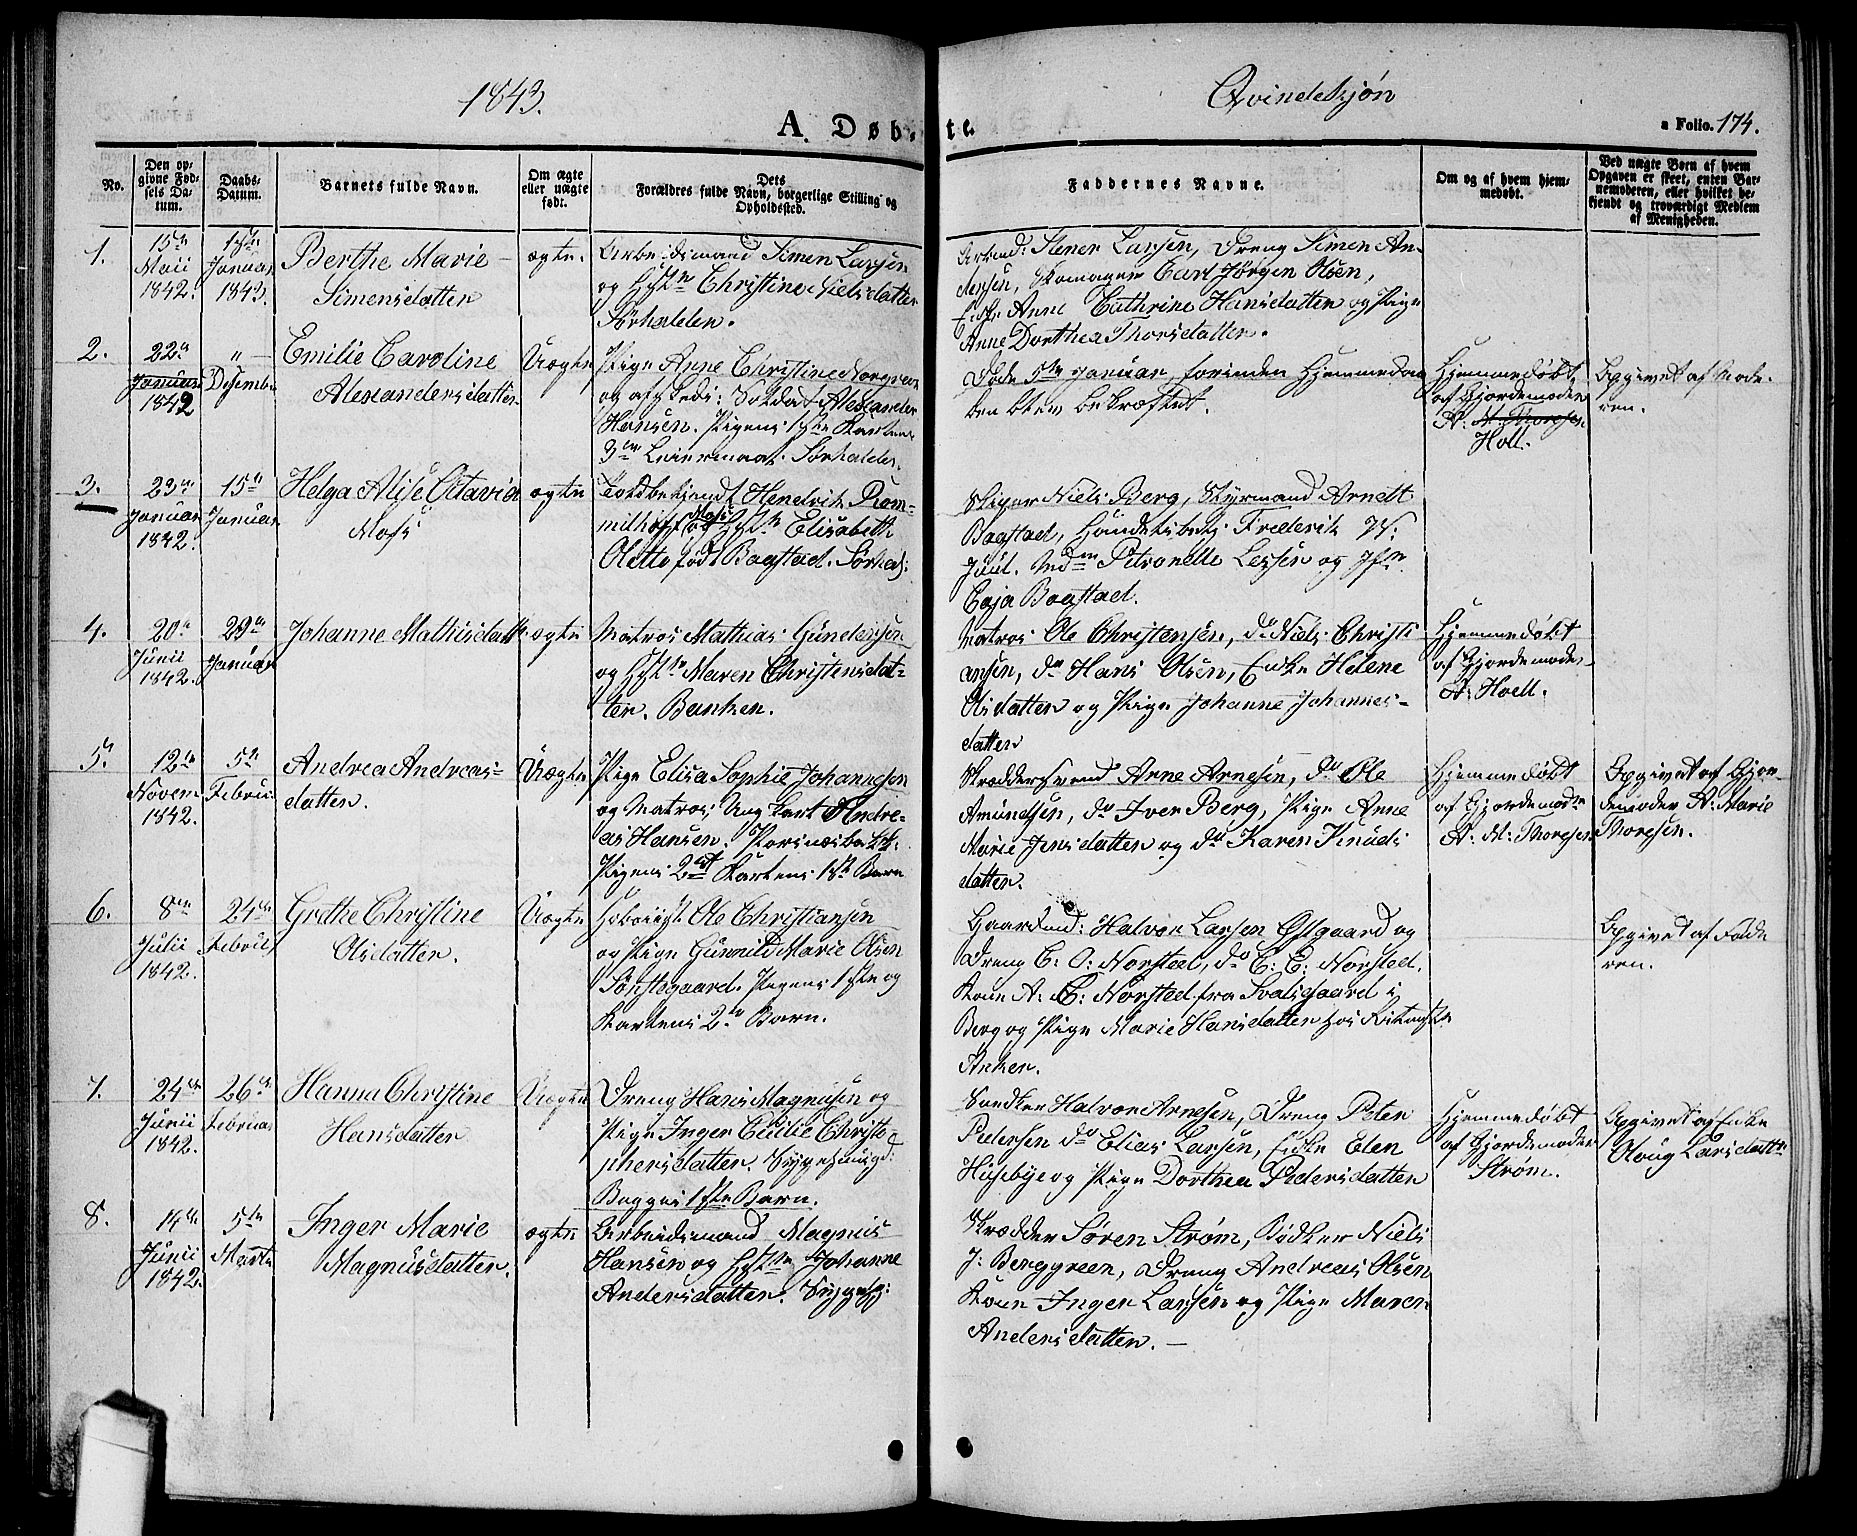 1843.
Qvindekjøn
A. Døbte.
a Folio. 174.
No.
Den opgivne Fødsels Datum.
Daabs-Datum.
Barnets fulde Navn.
Om ægte eller uægte født.
Dets Forældres fulde Navn, borgerlige Stilling og Opholdssted.
Faddernes Navne.
Om og af hvem hjemmedøbt.
Ved uægte Børn af hvem Opgaven er skeet, enten Barnemoderen, eller hvilket bekjendt og troværdigt Medlem af Menigheden.
1.
15de Maii 1842.
Januar 1843.
Berthe Marie
Simensdatter
ægte.
Arbeidsmand Simen Larsen
og Hst. Christine Nielsdatter
Sørhalden.
Arbmd: Stener Larsen, Dreng Simen An-
dersen, Skomager Carl Jørgen Olsen,
Enke Anne Cathrine Hansdatter og Pige
Anne Dorthea Thorsdatter.
2.
22de Januar 1842
" Desember
Emilie Caroline
Alexandersdatter
Uægte
Pige Anne Christine
og afskeds: Soldat Alexander
Hansen. Pigens 1ste Karlens
3die Leiermaal. Sørhalden.
Døde 5te Januar forinden Hjemmedaa
ben blev bekræftet.
Hjemmedøbt
af Gjordemoder
A: M: Thoresen
Holl.
Opgivet af Mode-
ren.
3.
23de Januar 1842.
15de Januar
Helga Alise Octavia
Moss
ægte
Toldbetjendt Hendrik Rom-
milhoff Moss og Hst. Elisabeth
Olette født Bagstad. Sørhald:
Skiper Niels Berg, Styrmand Arnett
Bagstad, Handelsbetj: Frederik
Juul. Md Petronelle Lessen og Jfr.
Caja Bagstad.
4.
20de Junii 1842.
29de Januar
Johanne Mathisdatter
ægte
Matros Mathias Gundersen
og Hst. Maren Christensdat-
ter. Banken.
Matros Ole Christensen, do Niels Christi
ansen, do Hans Olsen, Enke Helene
Olsdatter og Pige Johanne Johannes-
datter
Hjemmedøbt
af Gjordemoder
A: Hoell.
5.
12te Novem 1842.
5te Februar
Andrea Andreas-
datter.
Uægte
Pige Elisa Sophie Johannesen
og Matros, Ung Karl Andre-
as Hansen. Porsnæsbakk:
Pigens 2det Karlens 1ste Barn
Skreddersvend Arne Arnesen, do Ole
Amundsen, do Iver Berg, Pige Anne
Marie Jensdatter og do Karen Knuds
datter.
Hjemmedøbt
af Gjordemoder
A: M: Thoresen
Opgivet af Gjor-
demoder A: Marie
Thoresen.
6.
8de Julii 1842.
24de Februar
Grethe Christine
Olsdatter.
Uægte
Ole Christiansen
og Pige Gunnild Marie Olsen
Pigens 1ste og
Karlens 2de Barn.
Gaardmd: Halvor Larsen Østgaard og
Dreng C: O: Norsted, do C: E: Norsted,
Kone A: C: Norsted fra Svalsgaard i
Berg og Pige Marie Hansdatter hos
Anker.
Opgivet af Fade
ren.
7.
24de Junii 1842.
26de Februar
Hanna Christine
Hansdatter
Uægte
Dreng Hans Magnusen og
Pige Inger Cicilie Christo-
phersdatter.
Begges 1ste Barn.
Snedker Halvor Arnesen, Dreng Peter
Pedersen do Elias Larsen, Enke Elen
Husebye og Pige Dorthea Pedersdatter
Hjemmedøbt
af Gjordemoder
Strøm.
Opgivet af Enke
Oloug Larsdatter
8.
14de Junii 1842.
5te Marts
Inger Marie
Magnusdatter.
ægte
Arbeidsmand Magnus
Hansen og Hst. Johanne
Andersdatter.
Skredder Søren Strøm, Bødker Niels
J: Berggreen, Dreng Andreas Olsen
Kone Inger Larsen og Pige Maren
Andersdatter. —